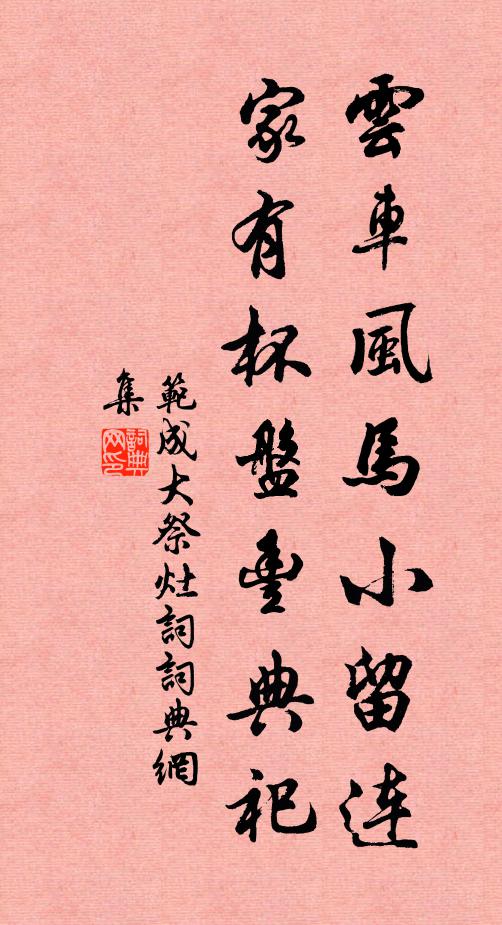 雲車風馬小留連
家有杯盤豊典祀
範成大祭灶詞詞典網
集
詞典網印